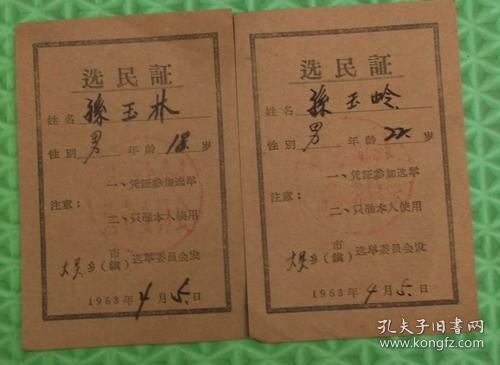 选民証
姓名 孫玉林
性別 男 年齡 18 岁
注意：
一、凭証参加选举
二、只准本人使用
市
(鎮) 选举委員会发
1963年4月5日
选民証
姓名 孫玉岭
性別 男 年齡 22 岁
注意：
一、凭証参加选举
二、只准本人使用
市
(鎮) 选举委員会发
1963年4月5日
孔夫子旧书网
www.kongfz.com